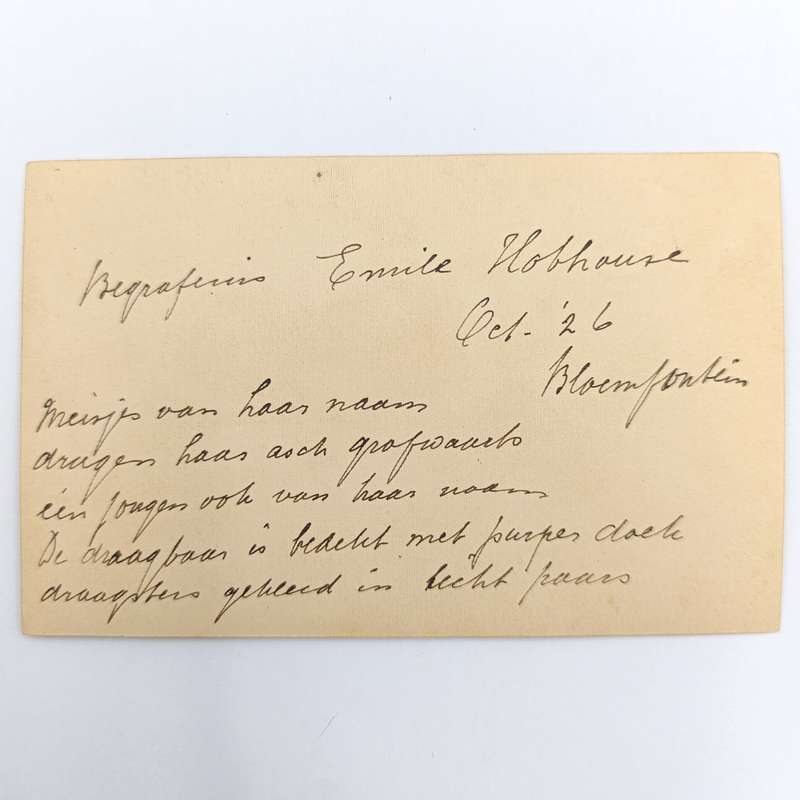 Begrafenis Emile Hobhouse
Oct. '26
Bloemfontein
Meisjes van haar naam
drugen haar asch grafwaarts
één jongen ook van haar naam
De draagbaar is bedekt met purper doek
draagsters gekleed in licht paars